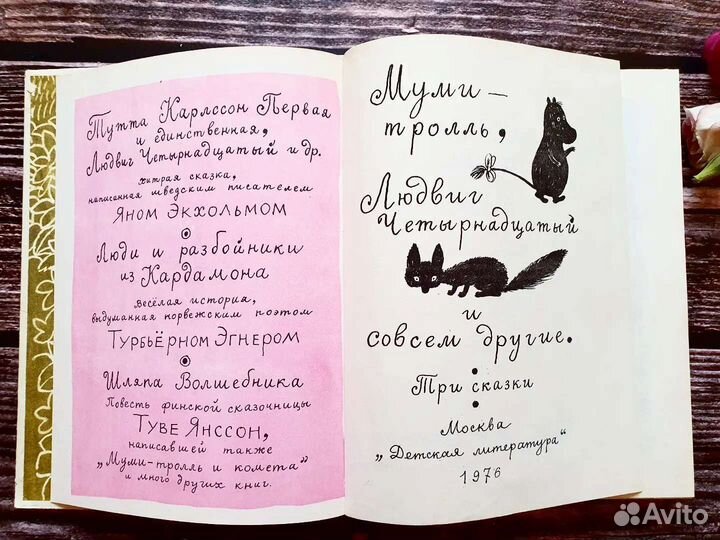 Тутта Карлссон Первая
и единственная,
Людвиг Четырнадцатый и др.
хитрая сказка,
написанная шведским писателем
Яном Экхольмом
Люди и разбойники
из Кардамона
весёлая история,
выдуманная норвежским поэтом
Турбьёрном Эгнером
Шляпа Волшебника
Повесть финской сказочницы
Туве Янссон,
написавшей также
„Муми-тролль и комета"
и много других книг.
Муми-
тролль,
Людвиг
Четырнадцатый
и
совсем другие.
Три сказки
Москва
„Детская литература"
1976
Avito